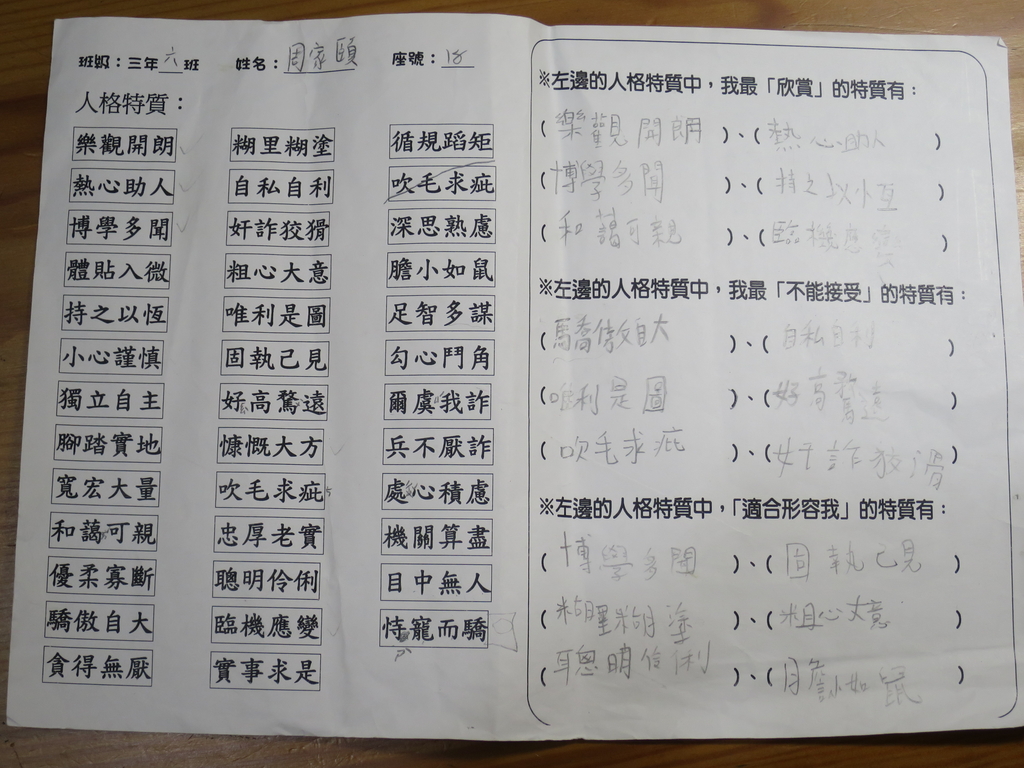 班級：三年六班 姓名：周家頤 座號：18
人格特質：
樂觀開朗 糊里糊塗 循規蹈矩
熱心助人 自私自利 吹毛求疵
博學多聞 奸詐狡猾 深思熟慮
體貼入微 粗心大意 膽小如鼠
持之以恆 唯利是圖 足智多謀
小心謹慎 固執己見 勾心鬥角
獨立自主 好高騖遠 爾虞我詐
腳踏實地 慷慨大方 兵不厭詐
寬宏大量 吹毛求疵 處心積慮
和藹可親 忠厚老實 機關算盡
優柔寡斷 聰明伶俐 目中無人
驕傲自大 臨機應變 恃寵而驕
貪得無厭 實事求是
※左邊的人格特質中，我最「欣賞」的特質有：
（樂觀開朗）、（熱心助人）
（博學多聞）、（持之以恆）
（和藹可親）、（臨機應變）
※左邊的人格特質中，我最「不能接受」的特質有：
（驕傲自大）、（自私自利）
（唯利是圖）、（好高騖遠）
（吹毛求疵）、（奸詐狡滑）
※左邊的人格特質中，「適合形容我」的特質有：
（博學多聞）、（固執己見）
（糊里糊塗）、（粗心大意）
（聰明伶俐）、（膽小如鼠）